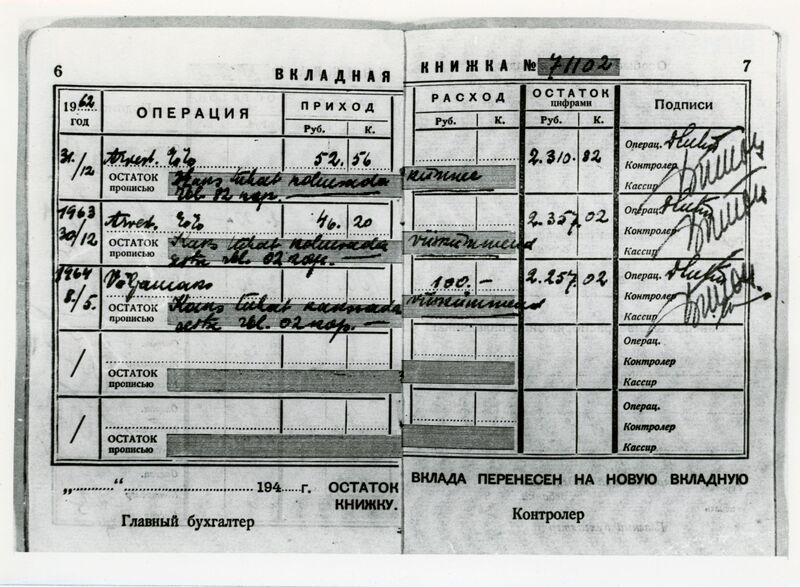 6 ВКЛАДНАЯ КНИЖКА № 71102 7
1962 год ОПЕРАЦИЯ ПРИХОД РАСХОД ОСТАТОК цифрами Подписи
Руб. К. Руб. К.
31/12 Arvest. % % 52. 56 2.310. 82 Операц.
Контролер
ОСТАТОК прописью Kaks tuhat kolmsada kümme Кассир
rbl. 82 kop. —
1963
30/12 Arvest. % % 46. 20 2.357. 02 Операц.
Контролер
ОСТАТОК прописью Kaks tuhat kolmsada viiskümmend Кассир
rbl. 02 kop. —
1964
8./5. Väljamaks 100.- 2.257. 02 Операц.
Контролер
ОСТАТОК прописью Kaks tuhat kakssada viiskümmend Кассир
rbl. 02 kop. —
/ Операц.
Контролер
ОСТАТОК прописью Кассир
/ Операц.
Контролер
ОСТАТОК прописью Кассир
„ “ 194 г. ОСТАТОК ВКЛАДА ПЕРЕНЕСЕН НА НОВУЮ ВКЛАДНУЮ
КНИЖКУ.
Главный бухгалтер Контролер